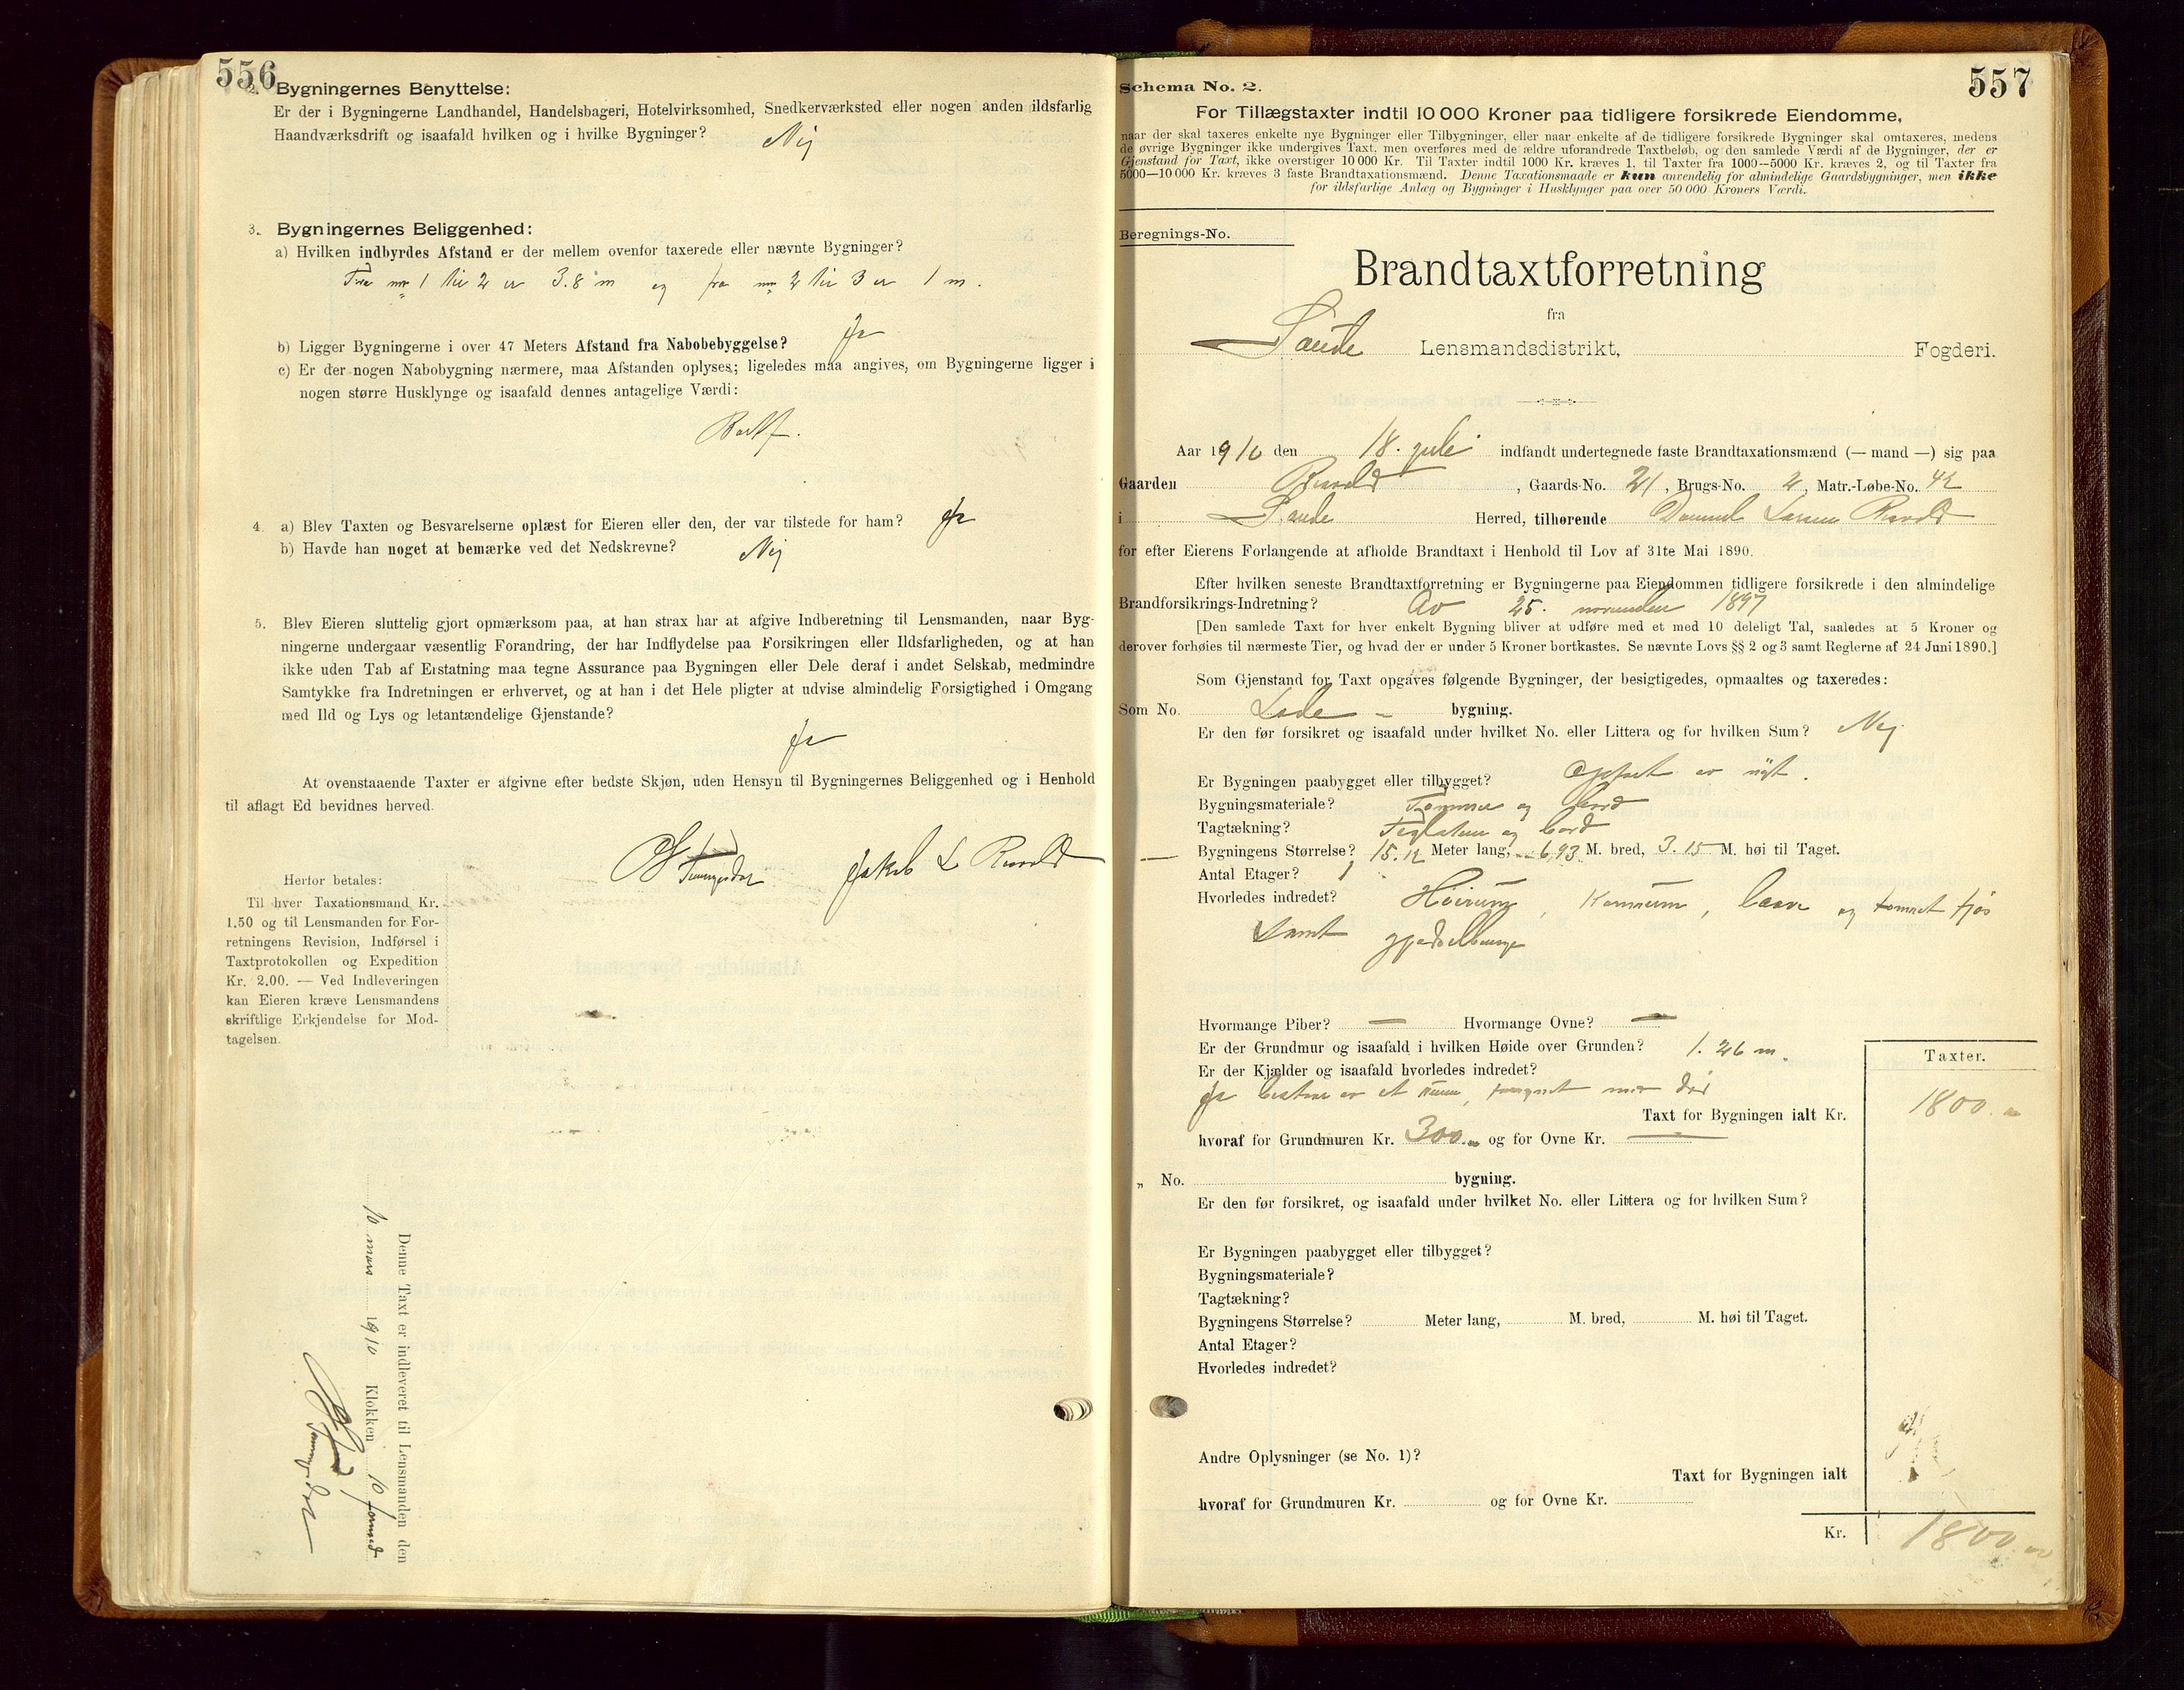 556
2. Bygningernes Benyttelse:
Er der i Bygningerne Landhandel, Handelsbageri, Hotelvirksomhed, Snedkerværksted eller nogen anden ildsfarlig
Haandværksdrift og isaafald hvilken og i hvilke Bygninger? Nei
3. Bygningernes Beliggenhed:
a) Hvilken indbyrdes Afstand er der mellem ovenfor taxerede eller nævnte Bygninger?
Fra nr 1 til 2 er 3.8 m og fra nr 2 til 3 er 1 m.
b) Ligger Bygningerne i over 47 Meters Afstand fra Nabobebyggelse? Ja
c) Er der nogen Nabobygning nærmere, maa Afstanden oplyses; ligeledes maa angives, om Bygningerne ligger i
nogen større Husklynge og isaafald dennes antagelige Værdi:
Bortf.
4. a) Blev Taxten og Besvarelserne oplæst for Eieren eller den, der var tilstede for ham? Ja
b) Havde han noget at bemærke ved det Nedskrevne? Nei
5. Blev Eieren sluttelig gjort opmærksom paa, at han strax har at afgive Indberetning til Lensmanden, naar Byg-
ningerne undergaar væsentlig Forandring, der har Indflydelse paa Forsikringen eller Ildsfarligheden, og at han
ikke uden Tab af Erstatning maa tegne Assurance paa Bygningen eller Dele deraf i andet Selskab, medmindre
Samtykke fra Indretningen er erhvervet, og at han i det Hele pligter at udvise almindelig Forsigtighed i Omgang
med Ild og Lys og letantændelige Gjenstande?
Ja
At ovenstaaende Taxter er afgivne efter bedste Skjøn, uden Hensyn til Bygningernes Beliggenhed og i Henhold
til aflagt Ed bevidnes herved.
Jakob L Ravold
Herfor betales:
Til hver Taxationsmand Kr.
1.50 og til Lensmanden for For-
retningens Revision, Indførsel i
Taxtprotokollen og Expedition
Kr. 2.00. — Ved Indleveringen
kan Eieren kræve Lensmandens
skriftlige Erkjendelse for Mod-
tagelsen.
Denne Taxt er indleveret til Lensmanden den
10 mars 1910 Klokken 10 formd
557
Schema No. 2.
For Tillægstaxter indtil 10 000 Kroner paa tidligere forsikrede Eiendomme,
naar der skal taxeres enkelte nye Bygninger eller Tilbygninger, eller naar enkelte af de tidligere forsikrede Bygninger skal omtaxeres, medens
de øvrige Bygninger ikke undergives Taxt, men overføres med de ældre uforandrede Taxtbeløb, og den samlede Værdi af de Bygninger, der er
Gjenstand for Taxt, ikke overstiger 10 000 Kr. Til Taxter indtil 1000 Kr. kræves 1, til Taxter fra 1000—5000 Kr. kræves 2, og til Taxter fra
5000—10 000 Kr. kræves 3 faste Brandtaxationsmænd. Denne Taxationsmaade er kun anvendelig for almindelige Gaardsbygninger, men ikke
for ildsfarlige Anlæg og Bygninger i Husklynger paa over 50 000 Kroners Værdi.
Beregnings-No.
Brandtaxtforretning
fra
Sande Lensmandsdistrikt, Fogderi.
Aar 1910 den 18. juli indfandt undertegnede faste Brandtaxationsmænd (— mand —) sig paa
Gaarden Ravold, Gaards-No. 21, Brugs-No. 2, Matr.-Løbe-No. 42
i Sande Herred, tilhørende Daniel Larsen Ravold
for efter Eierens Forlangende at afholde Brandtaxt i Henhold til Lov af 31te Mai 1890.
Efter hvilken seneste Brandtaxtforretning er Bygningerne paa Eiendommen tidligere forsikrede i den almindelige
Brandforsikrings-Indretning? Av 25. november 1897
[Den samlede Taxt for hver enkelt Bygning bliver at udføre med et med 10 deleligt Tal, saaledes at 5 Kroner og
derover forhøies til nærmeste Tier, og hvad der er under 5 Kroner bortkastes. Se nævnte Lovs §§ 2 og 3 samt Reglerne af 24 Juni 1890.]
Som Gjenstand for Taxt opgaves følgende Bygninger, der besigtigedes, opmaaltes og taxeredes:
Som No. Lade - bygning.
Er den før forsikret og isaafald under hvilket No. eller Littera og for hvilken Sum? Nei
Er Bygningen paabygget eller tilbygget? Opført av nyt.
Bygningsmateriale? Tømmer og bord
Tagtækning? Teglsten og bord
Bygningens Størrelse? 15.12 Meter lang, 6,93 M. bred, 3.15 M. høi til Taget.
Antal Etager? 1
Hvorledes indredet? Høirum, Kornrum, laave og tømret fjøs
samt
Hvormange Piber? — Hvormange Ovne? —
Er der Grundmur og isaafald i hvilken Høide over Grunden? 1.26 m.
Er der Kjælder og isaafald hvorledes indredet?
Ja bestaar av et rum, med dør
Taxter.
Taxt for Bygningen ialt Kr. 1800.
hvoraf for Grundmuren Kr. 300. og for Ovne Kr. —
„ No. bygning.
Er den før forsikret, og isaafald under hvilket No. eller Littera og for hvilken Sum?
Er Bygningen paabygget eller tilbygget?
Bygningsmateriale?
Tagtækning?
Bygningens Størrelse? Meter lang, M. bred, M. høi til Taget.
Antal Etager?
Hvorledes indredet?
Andre Oplysninger (se No. 1)?
Taxt for Bygningen ialt
hvoraf for Grundmuren Kr. og for Ovne Kr.
Kr. 1800.